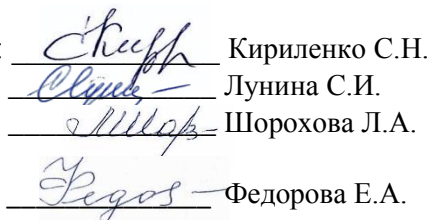 : Кириленко С.Н.
Лунина С.И.
Шорохова Л.А.
Федорова Е.А.